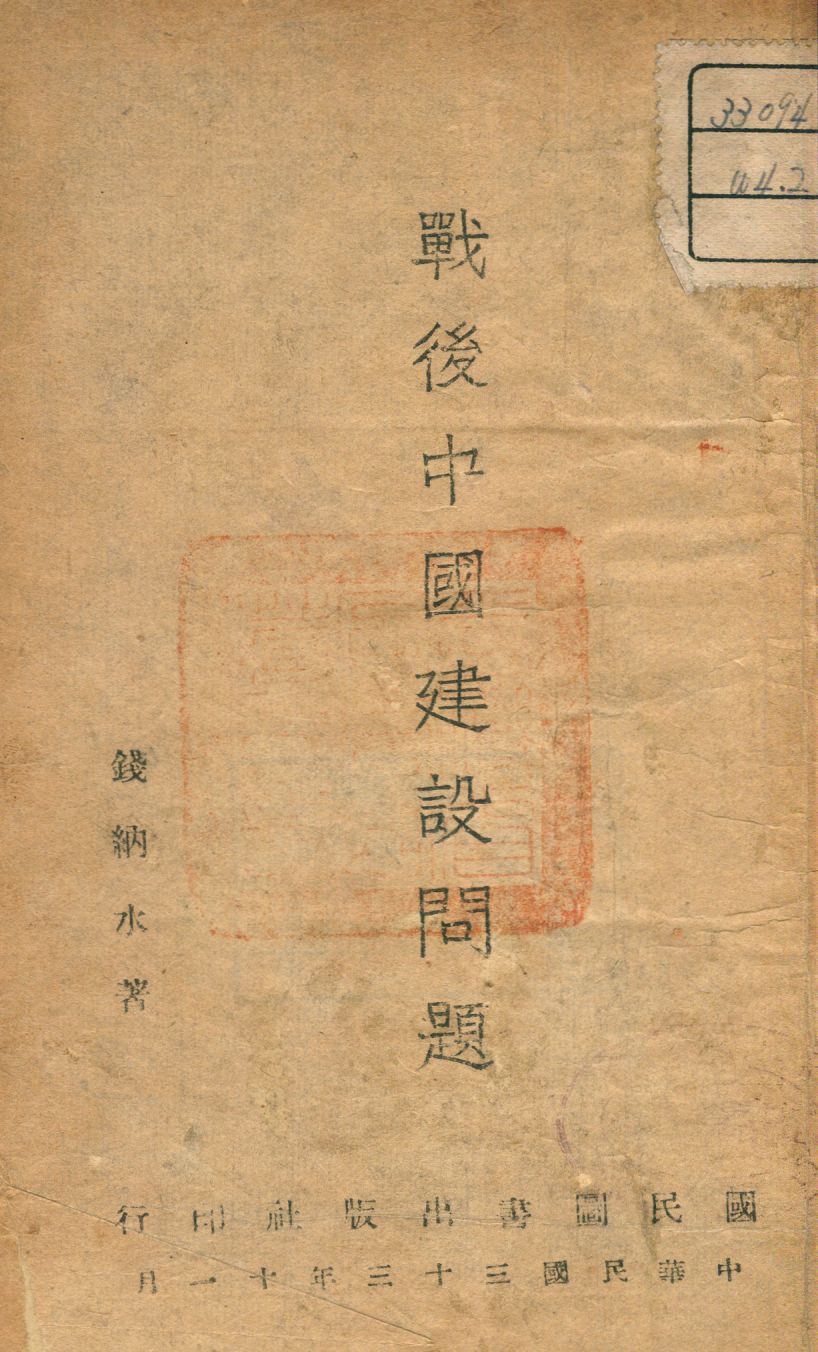 33094
戰後中國建設問題
錢納水著
國民圖書出版社印行
中華民國三十三年十一月